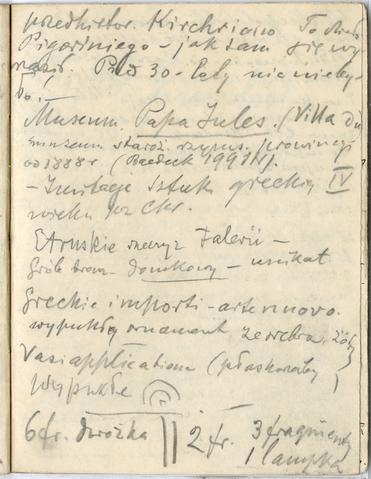 przedhistor. Kirchriano. To dzieło
Pigoriniego – jak sam się wy
raził. Przed 30-laty nie nie by-
ło.
Museum Papa Jules. (Villa di
museum staroż. rzyms. prowincji
od 1888 r (Baedek
– Imitacje sztuki greckiej IV
wieku prz Chr.
Etruskie rzeczy z Falerii –
Grób drzew- domkowy – unikat
Greckie importi – arte nuovo.
wypukły ornament ze srebra,
Vasi applicatione (płaskorzeźby
wypukłe
6 fr. dorożka 2 fr. 3 fragmenty
1 lampka